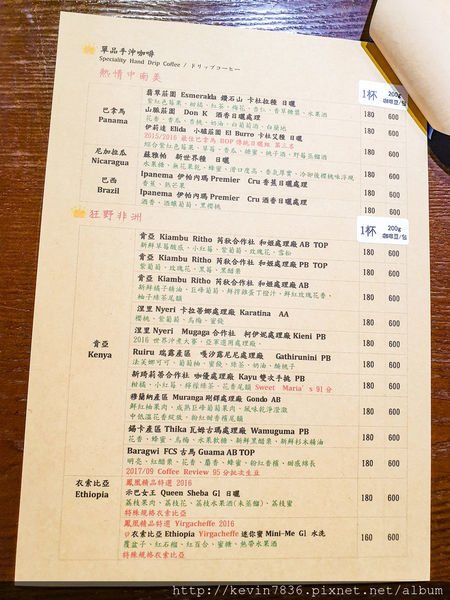 單品手沖咖啡
Speciality Hand Drip Coffee / ドリップコーヒー
熱情中南美
1杯 200g 咖啡豆/包
巴拿馬 Panama
翡翠莊園 Esmeralda 鑽石山 卡杜拉種 日曬 180 600
紫紅色莓果、柑橘、紅茶、梅花、杏仁、香草糖漿、水果酒
山脈莊園 Don K 酒香日曬處理 180 600
花香、香瓜、杏桃、奶油、白葡萄酒、白蘭地
伊莉達 Elida 小驢莊園 El Burro 卡杜艾種 日曬 180 600
2015/2016 最佳巴拿馬 BOP 傳統日曬組 第三名
綜合紫紅色莓果、草莓、香瓜、糖蜜、桃子酒、野莓蒸餾酒
尼加拉瓜 Nicaragua
蘇維帕 新世界種 日曬 180 600
巴西 Brazil
Ipanema 伊帕內瑪 Premier Cru 香蕉日曬處理 180 600
香蕉、熱芒果
Ipanema 伊帕內瑪 Premier Cru 酒香日曬處理 180 600
酒香、酒釀葡萄、黑櫻桃
狂野非洲
1杯 200g 咖啡豆/包
肯亞 Kenya
肯亞 Kiambu Ritho 芮秋合作社 和姬處理廠 AB TOP 180 600
新鮮草莓酸感、小紅莓、紫葡萄、玫瑰花、雪松
肯亞 Kiambu Ritho 芮秋合作社 和姬處理廠 PB TOP 180 600
紫葡萄、玫瑰花、黑莓、黑醋栗
肯亞 Kiambu Ritho 芮秋合作社 和姬處理廠 AB 180 600
新鮮橘子精油、巨峰葡萄、鮮搾雞蛋丁橙汁、鮮紅玫瑰花香、
柚子綠茶尾韻
涅里 Nyeri 卡拉蒂娜處理廠 Karatina AA 180 600
櫻桃、紫葡萄、烏梅、蜜餞
涅里 Nyeri Mugaga 合作社 柯伊妮處理廠 Kieni PB 180 600
2016 世界沖煮大賽，亞軍選用處理廠、
Ruiru 瑞露產區 嘎汐露尼尼處理廠 Gathirunini PB 180 600
法芙娜可可、葡萄柚、蜜餞、綠茶、奶油、楊桃子
新琦莉蒂合作社 咖優處理廠 Kayu 雙次手挑 PB 180 600
柑橘、小紅莓、檸檬綠茶、花香尾韻 Sweet Maria's 91 分
穆蘭納產區 Muranga 剛鐸處理廠 Gondo AB 180 600
鮮紅柚果肉、成熟巨峰葡萄果肉、風味乾淨澄澈
中低溫花香綻放、粉紅甜香檳尾韻
錫卡產區 Thika 瓦姆古瑪處理廠 Wamuguma PB 180 600
花香、蜂蜜、烏梅、水果軟糖、新鮮黑醋栗、新鮮杉木精油
Baragwi FCS 古馬 Guama AB TOP 180 600
明亮、紅醋栗、花香、麝香、蜂蜜、粉紅香檳、甜感綿長
2017/09 Coffee Review 95 分批次生豆
衣索比亞 Ethiopia
鳳凰精品特選 2016
示巴女王 Queen Sheba G1 日曬 180 600
荔枝果肉、荔枝花、荔枝水果酒(未蒸餾)、荔枝蜜
特殊規格衣索比亞
鳳凰精品特選 Yirgacheffe 2016
衣索比亞 Ethiopia Yirgacheffe 迷你蜜 Mini-Me G1 水洗 160 600
覆盆子、紅石榴、紅百合、蜜糖、熱帶水果酒
特殊規格衣索比亞
http://kevin7836.pixnet.net/album